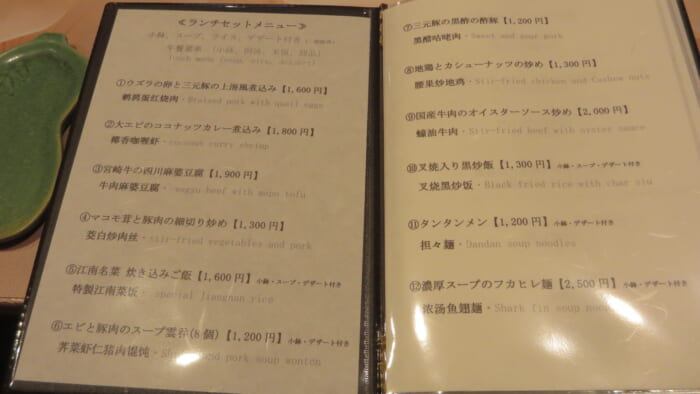 ≪ランチセットメニュー≫
小鉢、スープ、ライス、デザート付き
午餐菜单 (小鉢、例汤、米饭、甜品)
Lunch menu (soup, rice, dessert)
①ウズラの卵と三元豚の上海風煮込み【1,600円】
鹌鹑蛋红烧肉・Braised pork with quail eggs
②大エビのココナッツカレー煮込み【1,800円】
椰香咖喱虾・coconut curry shrimp
③宮崎牛の四川麻婆豆腐【1,900円】
牛肉麻婆豆腐・wagyu beef with mapo tofu
④マコモ茸と豚肉の細切り炒め【1,300円】
茭白炒肉丝・stir-fried vegetables and pork
⑤江南名菜 炊き込みご飯【1,600円】小鉢・スープ・デザート付き
特製江南菜饭・special Jiangnan rice
⑥エビと豚肉のスープ雲呑(8個)【1,200円】小鉢・デザート付き
荠菜虾仁猪肉馄饨・Shrimp and pork soup wonton
⑦三元豚の黒酢の酢豚【1,200円】
黑醋咕咾肉・Sweet and sour pork
⑧地鶏とカシューナッツの炒め【1,300円】
腰果炒地鸡・Stir-fried chicken and Cashew nuts
⑨国産牛肉のオイスターソース炒め【2,000円】
蠔油牛肉・Stir-fried beef with oyster sauce
⑩叉焼入り黒炒飯【1,300円】小鉢・スープ・デザート付き
叉烧黑炒饭・Black fried rice with char siu
⑪タンタンメン【1,200円】小鉢・デザート付き
担々麺・Dandan soup noodles
⑫濃厚スープのフカヒレ麺【2,500円】小鉢・デザート付き
浓汤鱼翅麺・Shark fin soup